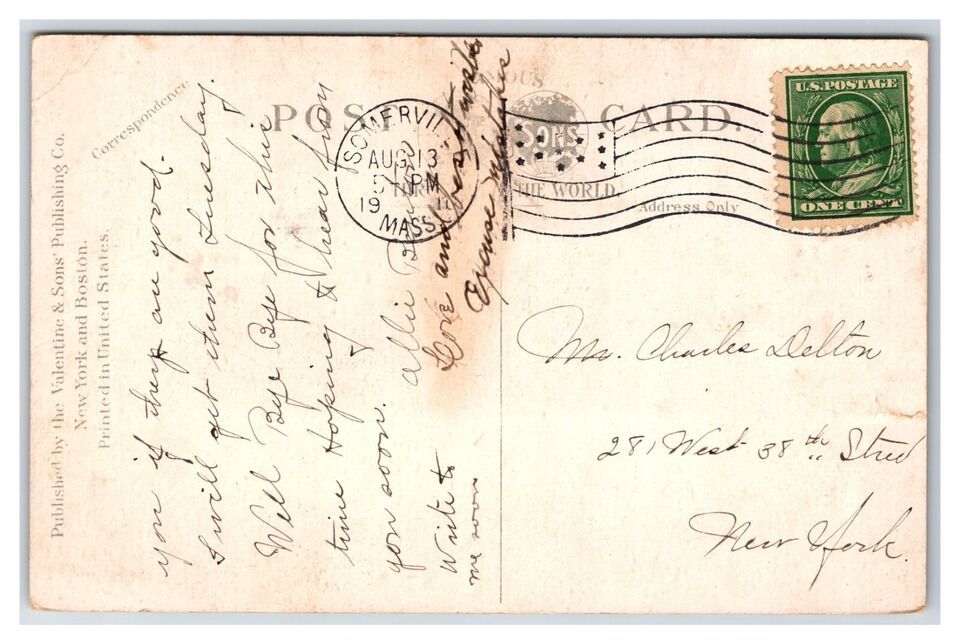 Published by the Valentine & Sons' Publishing Co.
New York and Boston.
Printed in United States.
Correspondence
POST CARD.
FAMOUS
SONS
THE WORLD
Address Only
SOMERVIL
AUG 13
5 PM
19
MASS.
U.S. POSTAGE
ONE CENT
you if they are good.
I will get them Tuesday.
Well Bye Bye for this
time Hoping to hear from
you soon. Allie
Write to
me soon
Love and best wishes
Excuse mistakes
Mr. Charles Delton
281 West 38th Street
New York.